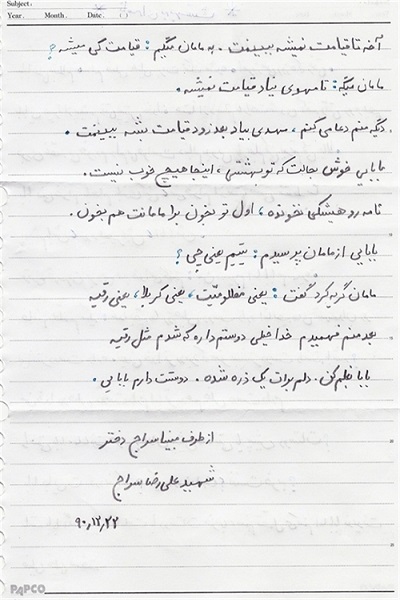 Subject:
Year. Month. Date.
آخه تا قیامت نمیشه ببینمت. به مامان میگم: قیامت کی میشه؟
مامان میگه: تا مهدی نیاد قیامت نمیشه.
دیگه منم دعا می کنم، مهدی بیاد بعد زود قیامت بشه ببینمت.
بابایی خوش بحالت که تو بهشتی، اینجا هیچ خوب نیست.
نامه رو هیشکی نخونده، اول تو بخون برا مامانت هم بخون.
بابایی از مامان پرسیدم: یتیم یعنی چی؟
مامان گریه کرد گفت: یعنی مظلومیّت، یعنی کربلا، یعنی رقیه
بعد منم فهمیدم خدا خیلی دوستم داره که شدم مثل رقیه
بابا بغلم کن. دلم برات یک ذره شده. دوستت دارم بابایی.
از طرف مبینا سراج دختر
شهید علی رضا سراج
۹۰,۱۲,۲۲
PAPCO